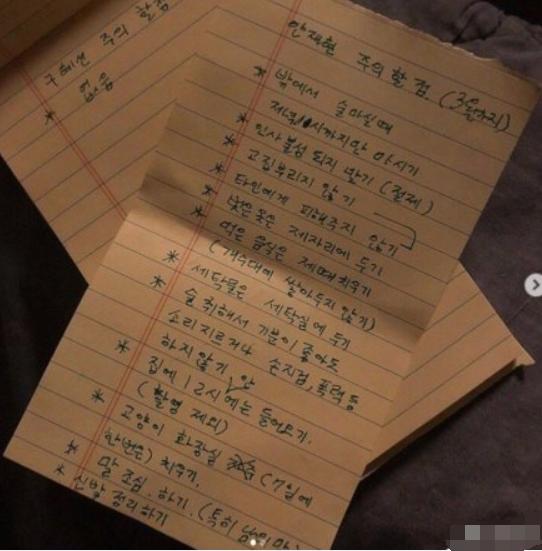 구혜선 주의 할점
* 없음
안재현 주의할 점. (3일까리)
* 밖에서 술마실때
저녁 시까지만 마시기
* 인사불성 되지 말기 (절제)
* 고집부리지 않기
* 타인에게 피해주지 않기
* 벗은옷은 제자리에 두기
먹은 음식은 제때치우기
(개수대에 쌓아두지 않기)
* 세탁물은 세탁실에 두기
* 술 취해서 기분이 좋아도
소리지르거나 손지검, 폭력 등
하지않기
* 집에 12시 안에는 들어오기.
(촬영 제외)
* 고양이 화장실 (7일에
한번은) 치우기.
* 말 조심. 하기. (특히 남의
* 신발 정리하기